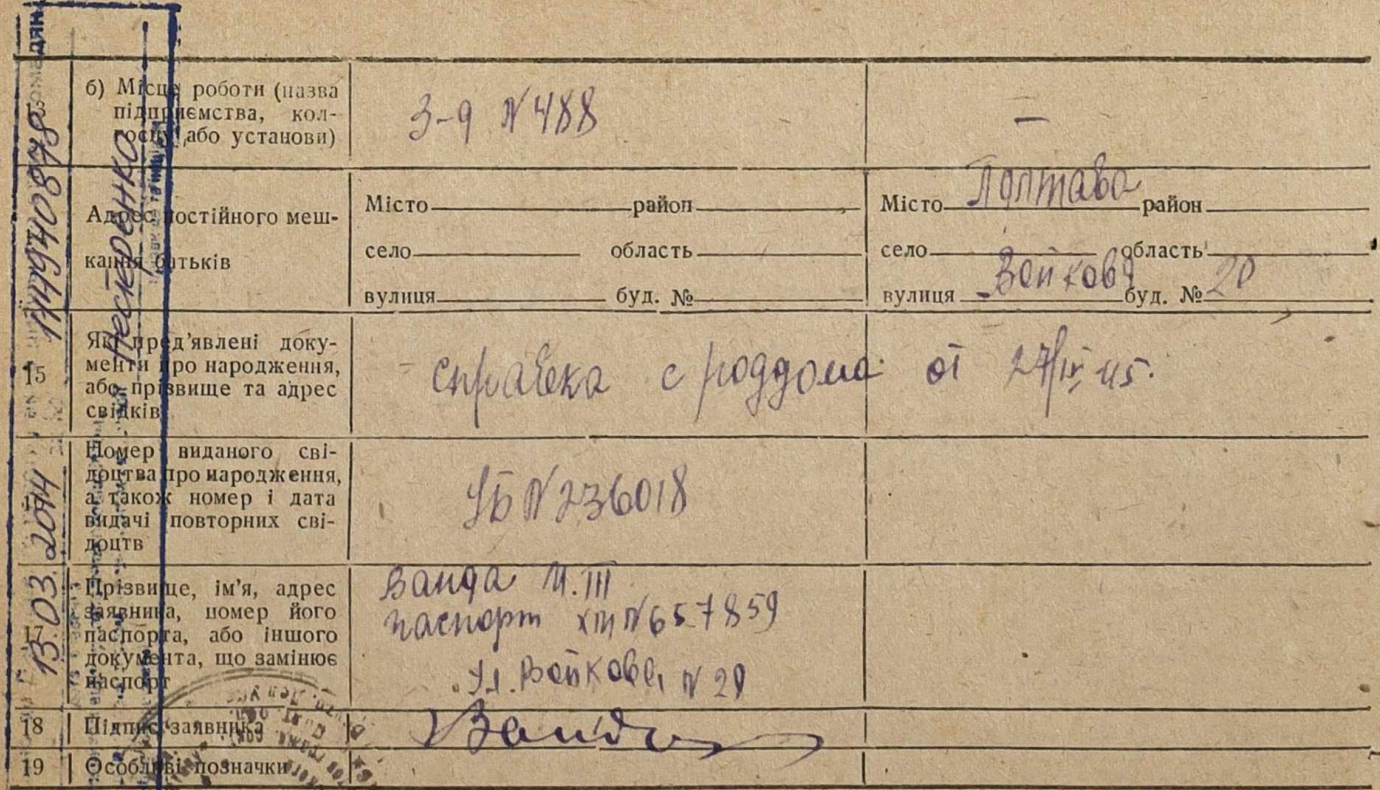 б) Місце роботи (назва
підприємства, кол-
госпу або установи)
З-д N 488
—
Адрес постійного меш-
кання батьків
Місто район
село область
вулиця буд. №
Місто Полтава район
село область
вулиця Войкова буд. № 20
15 Які пред'явлені доку-
менти про народження,
або прізвище та адрес
свідків
справка с роддома от 27/IV-45.
Номер виданого сві-
доцтва про народження,
а також номер і дата
видачі повторних сві-
доцтв
УБ N 236018
17 Прізвище, ім'я, адрес
заявника, номер його
паспорта, або іншого
документа, що замінює
паспорт
Ванда
паспорт N 657859
Ул. Войкова N 20
18 Підпис заявника
Ванда
19 Особливі позначки
13.03.2014
Нестеренко